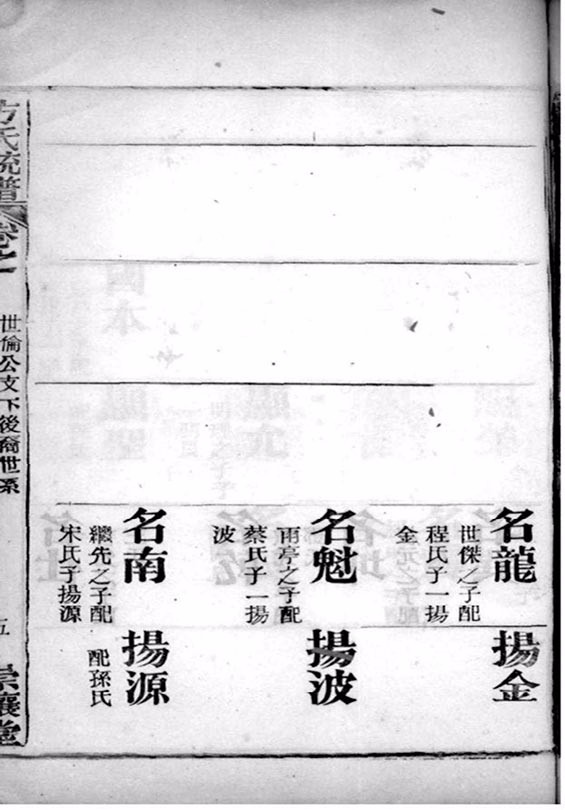 名龍
世傑之子配
程氏子一揚
金
揚金
名魁
雨亭之子配
蔡氏子一揚
波
揚波
名南
繼先之子配
宋氏子揚源
揚源
配孫氏
方氏統譜
卷之一
世倫公支下後裔世系
五
崇讓堂